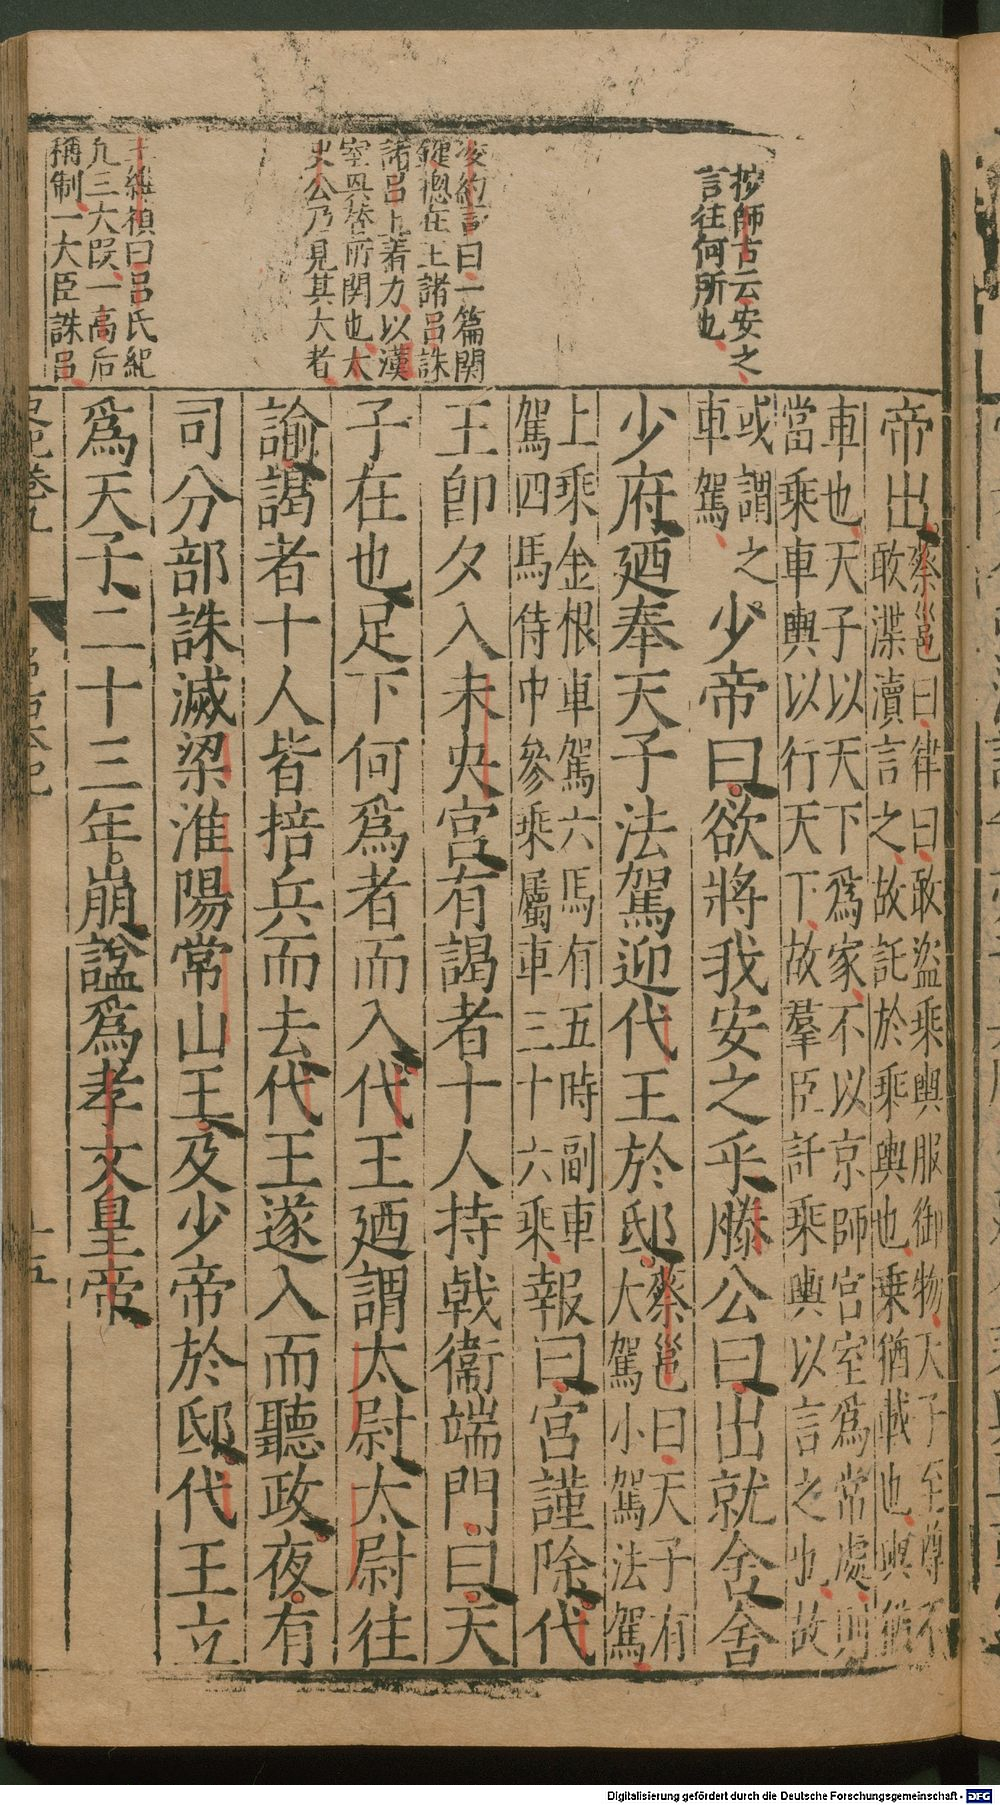 按師古云安之
言往何所也
凌約言曰一篇関
鍵總在王諸呂誅
諸呂上着力以漢
室興替所関也太
史公乃見其大者
王維禎曰呂氏紀
凡三大段一高后
稱制一大臣誅呂
帝出蔡邕曰律曰敢盜乘輿服御物天子至尊不
敢渫瀆言之故託於乘輿也乗猶載也輿猶
車也天子以天下爲家不以京師宮室爲常處則
當乘車輿以行天下故羣臣託乘輿以言之也故
或謂之
車駕少帝曰欲將我安之乎滕公曰出就舍舍
少府廼奉天子法駕迎代王於邸蔡邕曰天子有
大駕小駕法駕
上乘金根車駕六馬有五時副車
駕四馬侍中參乘屬車三十六乘報曰宮謹除代
王即夕入未央宮有謁者十人持戟衞端門曰天
子在也足下何爲者而入代王廼謂太尉太尉往
諭謁者十人皆掊兵而去代王遂入而聽政夜有
司分部誅滅梁淮陽常山王及少帝於邸代王立
爲天子二十三年崩諡爲孝文皇帝
史記卷九
呂后本紀
十五
Digitalisierung gefördert durch die Deutsche Forschungsgemeinschaft - DFG